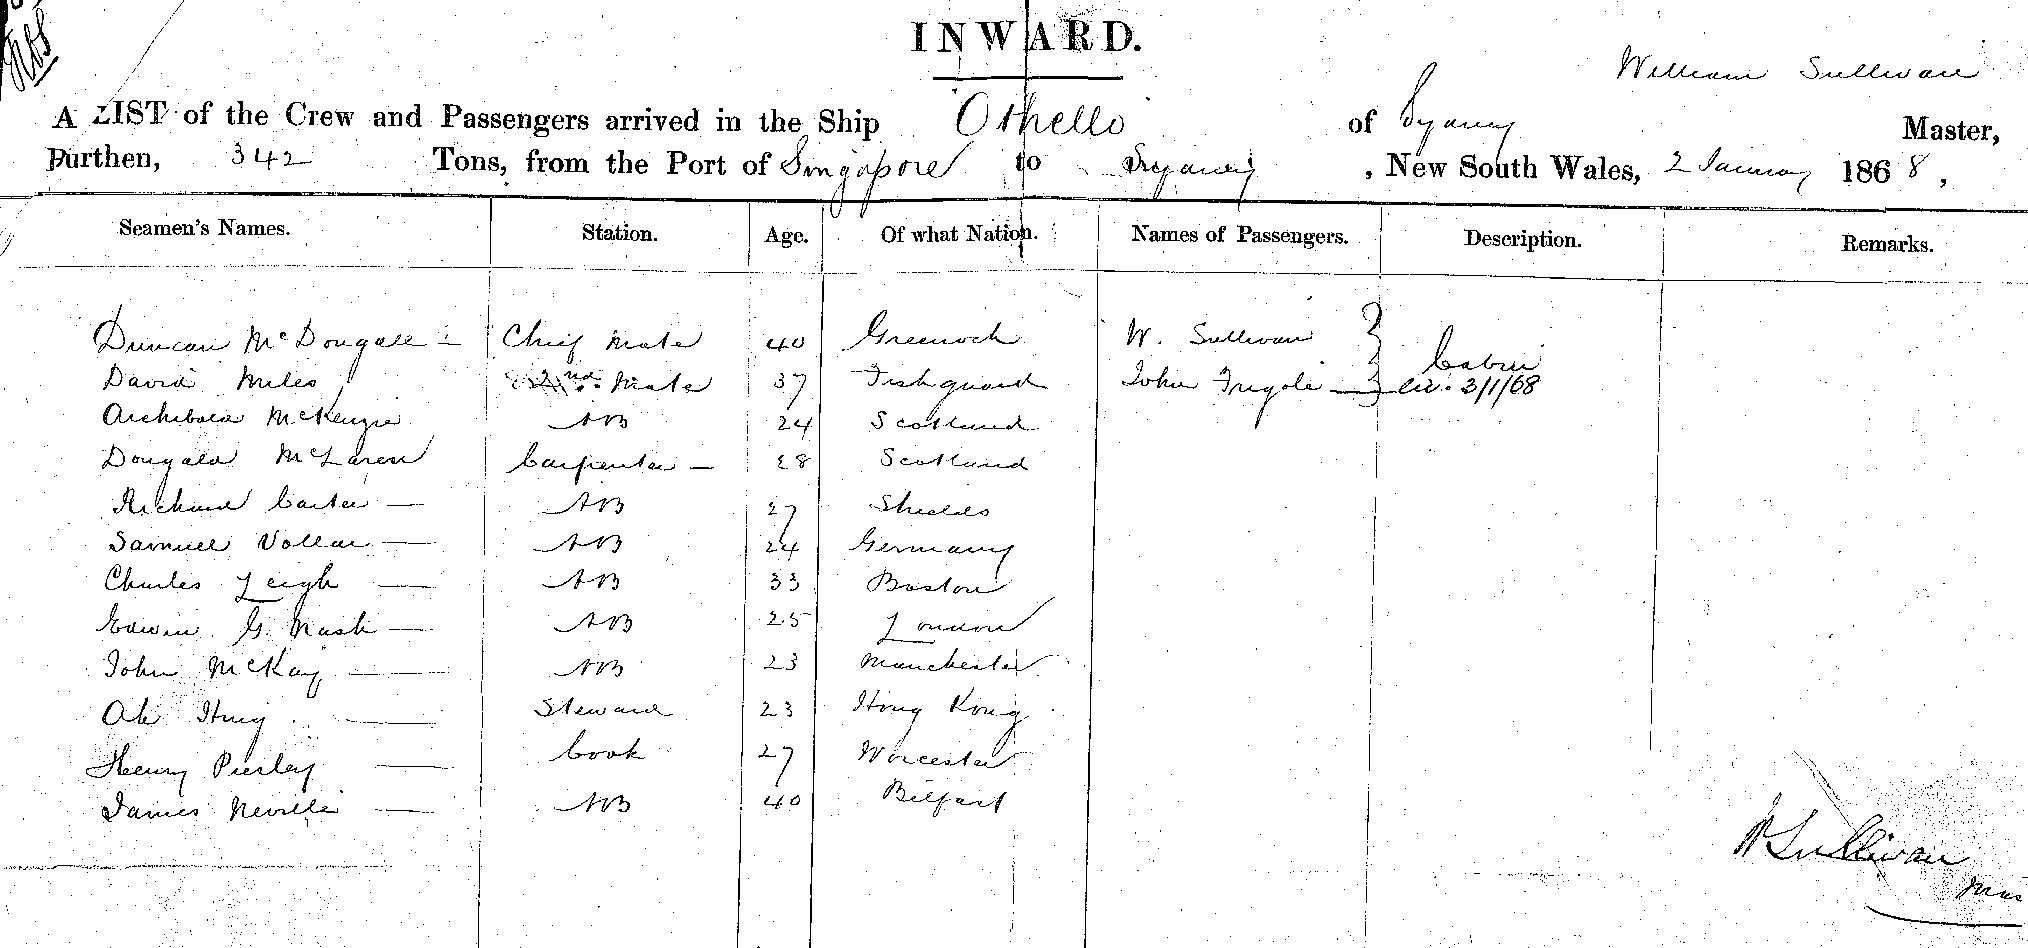 INWARD.
William Sullivan
A LIST of the Crew and Passengers arrived in the Ship Othello of Sydney Master,
Burthen, 342 Tons, from the Port of Singapore to Sydney , New South Wales, 2 January 1868,
Seamen's Names. Station. Age. Of what Nation. Names of Passengers. Description. Remarks.
Duncan McDougall Chief Mate 40 Greenock W. Sullivan Cabin
David Miles 2nd Mate 37 Fishguard John 3/1/68
Archibald McKenzie AB 24 Scotland
Dougald McLaren Carpenter 28 Scotland
Richard Carter AB 27 Shields
Samuel AB 24 Germany
Charles Leigh AB 33 Boston
Edwin G. Nash AB 25 London
John McKay AB 23 Manchester
Steward 23 Hong Kong
Henry Cook 27 Worcester
James Neville AB 40 Belfast
W Sullivan